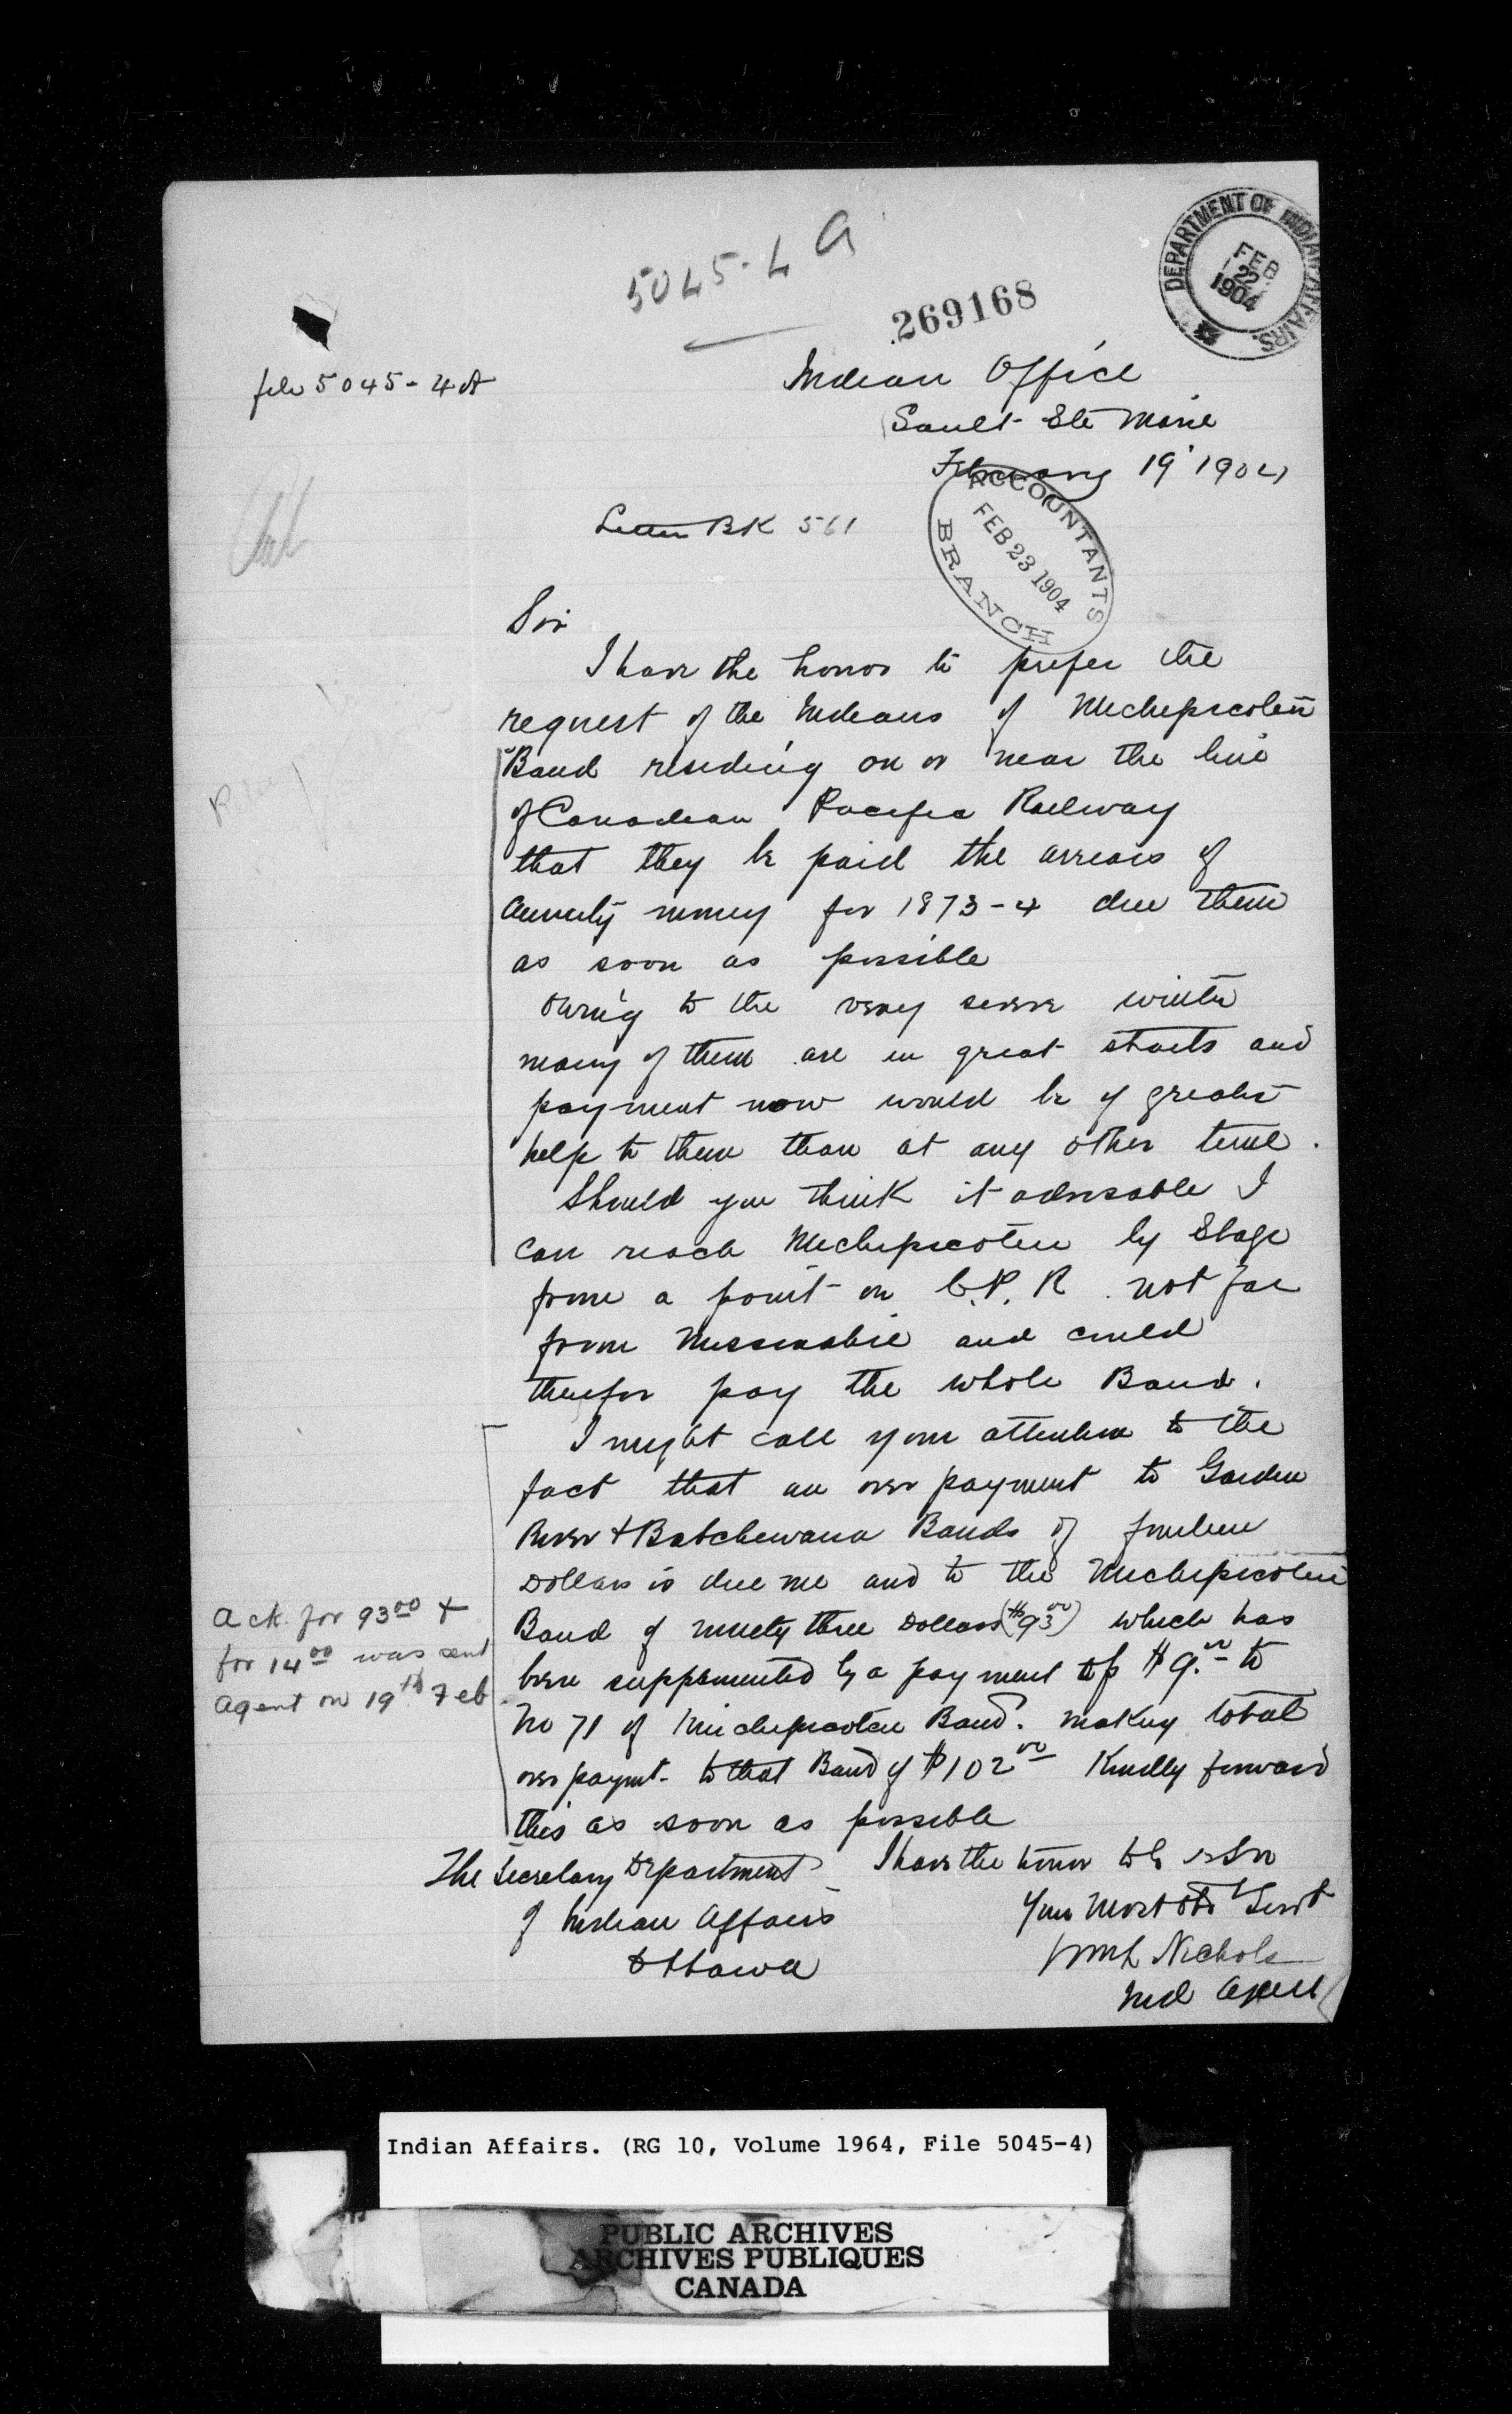 5045-4 A
269168
DEPARTMENT OF INDIAN AFFAIRS.
FEB
22
1904
file 5045-4A
Indian Office
Sault Ste Marie
February 19' 1904
ACCOUNTANTS
FEB 23 1904
BRANCH
Letter BK 561
Sir
I have the honor to prefer the
request of the Indians of Michipicoten
Band residing on or near the line
of Canadian Pacific Railway
that they be paid the arrears of
Annuity money for 1873-4 due them
as soon as possible
Owing to the very severe winter
many of them are in great straits and
payment now would be of greater
help to them than at any other time.
Should you think it advisable I
can reach Michipicoten by Stage
from a point on C.P.R. not far
from Missanabie and could
therefor pay the whole Band.
I might call your attention to the
fact that an over payment to Garden
River + Batchewana Bands of fourteen
Dollars is due me and to the Michipicoten
Band of ninety three Dollars ($93.00) which has
been supplemented by a payment of $9.00 to
No 71 of Michipicoten Band. making total
over paymt. to that Band of $102.00 Kindly forward
this as soon as possible
Ack. for 93.00 +
for 14.00 was sent
Agent on 19th Feb
I have the honor to be Sir
Your Most Obt Servt
Wm L Nichols
Ind Agent
The Secretary Department
of Indian Affairs
Ottawa
Indian Affairs. (RG 10, Volume 1964, File 5045-4)
PUBLIC ARCHIVES
ARCHIVES PUBLIQUES
CANADA